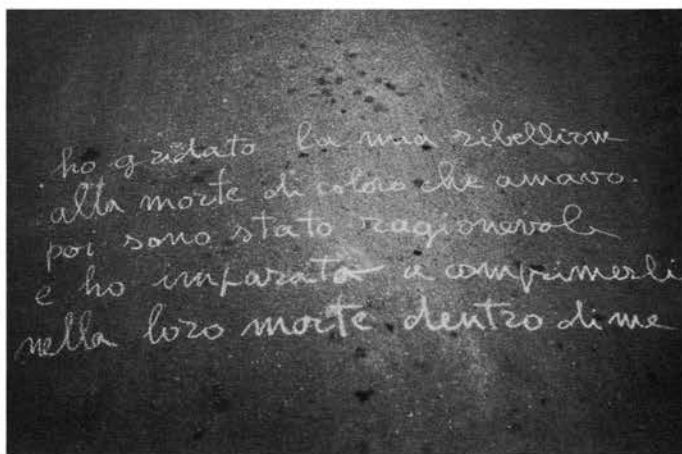 ho gridato la mia ribellione
alla morte di coloro che amavo.
poi sono stato ragionevole
e ho imparato a comprimerli
nella loro morte dentro di me